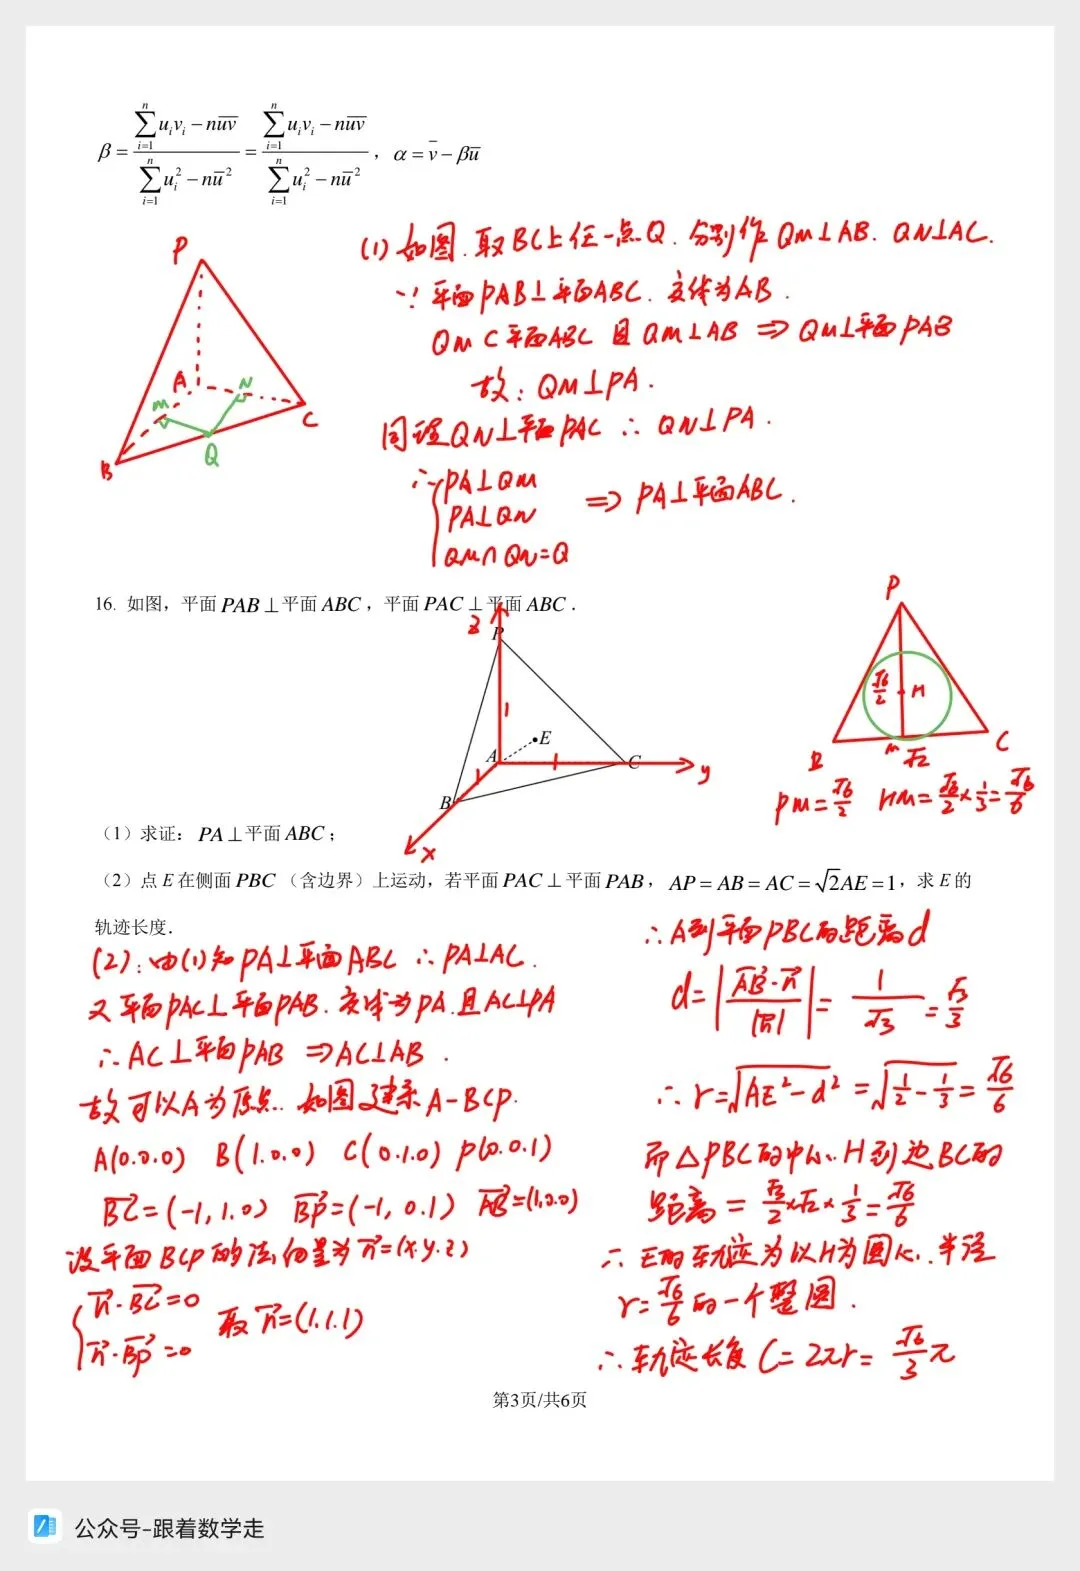 β = (∑_{i=1}^{n} u_i v_i − n\overline{uv}) / (∑_{i=1}^{n} u_i^2 − n\overline{u}^2) = (∑_{i=1}^{n} u_i v_i − n\overline{uv}) / (∑_{i=1}^{n} u_i^2 − n\overline{u}^2)，α = \overline{v} − β\overline{u}
P
A
N
M
C
B
Q
(1) 如图.取BC上任一点Q.分别作QM⊥AB.QN⊥AC.
∵平面PAB⊥平面ABC.交线为AB.
QM⊂平面ABC 且QM⊥AB ⇒ QM⊥平面PAB
故:QM⊥PA.
同理QN⊥平面PAC ∴ QN⊥PA.
∴{PA⊥QM
PA⊥QN ⇒ PA⊥平面ABC.
QM∩QN=Q
16. 如图，平面 PAB⊥平面 ABC，平面 PAC⊥平面 ABC．
z
P
1
E
A
1
C
y
1
B
x
P
√6/2
H
B
M
√2
C
PM=√6/2 HM=√6/2×1/3=√6/6
（1）求证：PA⊥平面 ABC；
（2）点 E 在侧面 PBC（含边界）上运动，若平面 PAC⊥平面 PAB，AP=AB=AC=√2AE=1，求 E 的
轨迹长度．
(2):由(1)知PA⊥平面ABC ∴PA⊥AC.
又平面PAC⊥平面PAB.交线为PA.且AC⊥PA
∴AC⊥平面PAB ⇒AC⊥AB.
故可以A为原点.如图建系A-BCP.
A(0.0.0) B(1.0.0) C(0.1.0) P(0.0.1)
BC→=(-1,1.0) BP→=(-1,0.1) AB→=(1,0.0)
设平面BCP的法向量为n→=(x.y.z)
{n→·BC→=0
n→·BP→=0 取n→=(1.1.1)
∴A到平面PBC的距离d
d=|AB→·n→/|n→||=1/√3=√3/3
∴r=√(AE²-d²)=√(1/2-1/3)=√6/6
而△PBC的中心H到边BC的
距离=√3/2×√2×1/3=√6/6
∴E的轨迹为以H为圆心.半径
r=√6/6的一个整圆.
∴轨迹长度C=2πr=√6/3π
第3页/共6页
公众号-跟着数学走